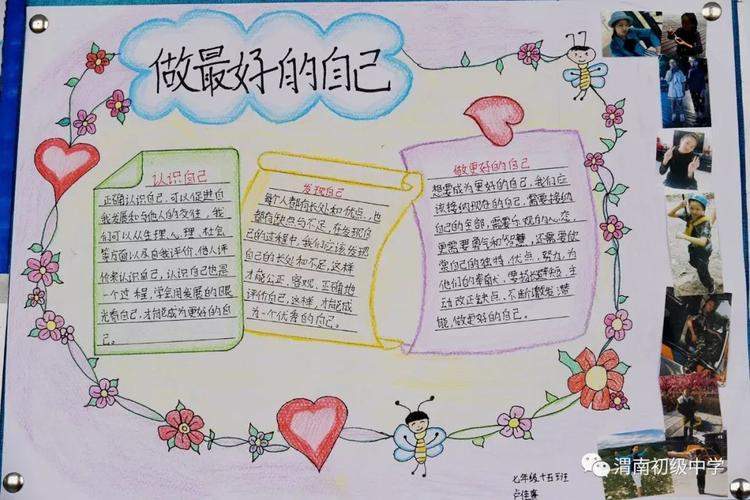 做最好的自己
认识自己
正确认识自己,可以促进自
我发展和与他人的交往,我
们可以从生理、心理、社会
等方面以及自我评价,他人评
价来认识自己,认识自己也是
一个过程,学会用发展的眼
光看自己,才能成为更好的自
己。
发现自己
每个人都有长处和优点,也
都有缺点与不足,在发现自
己的过程中,我们应该发现
自己的长处和不足,这样
才能公正、客观、正确地
评价自己,这样,才能成
为一个优秀的自己。
做更好的自己
想要成为更好的自己,我们应
该接纳现在的自己,需要接纳
自己的全部,需要乐观的心态,
更需要勇气和智慧,还需要欣
赏自己的独特、优点,努力,为
他们的奉献,要扬长避短,主
动改正缺点,不断激发潜
能,做更好的自己。
七年级十五班
渭南初级中学